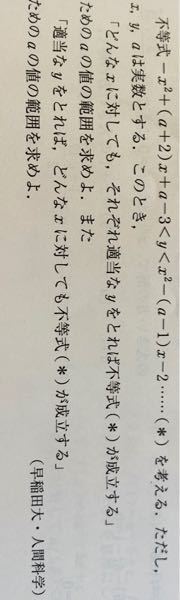 不等式 −x²+(a+2)x+a−3<y<x²−(a−1)x−2……(*) を考える．ただし，
x, y, a は実数とする．このとき，
「どんな x に対しても，それぞれ適当な y をとれば不等式(*)が成立する」
ための a の値の範囲を求めよ．また
「適当な y をとれば，どんな x に対しても不等式(*)が成立する」
ための a の値の範囲を求めよ．
(早稲田大・人間科学)